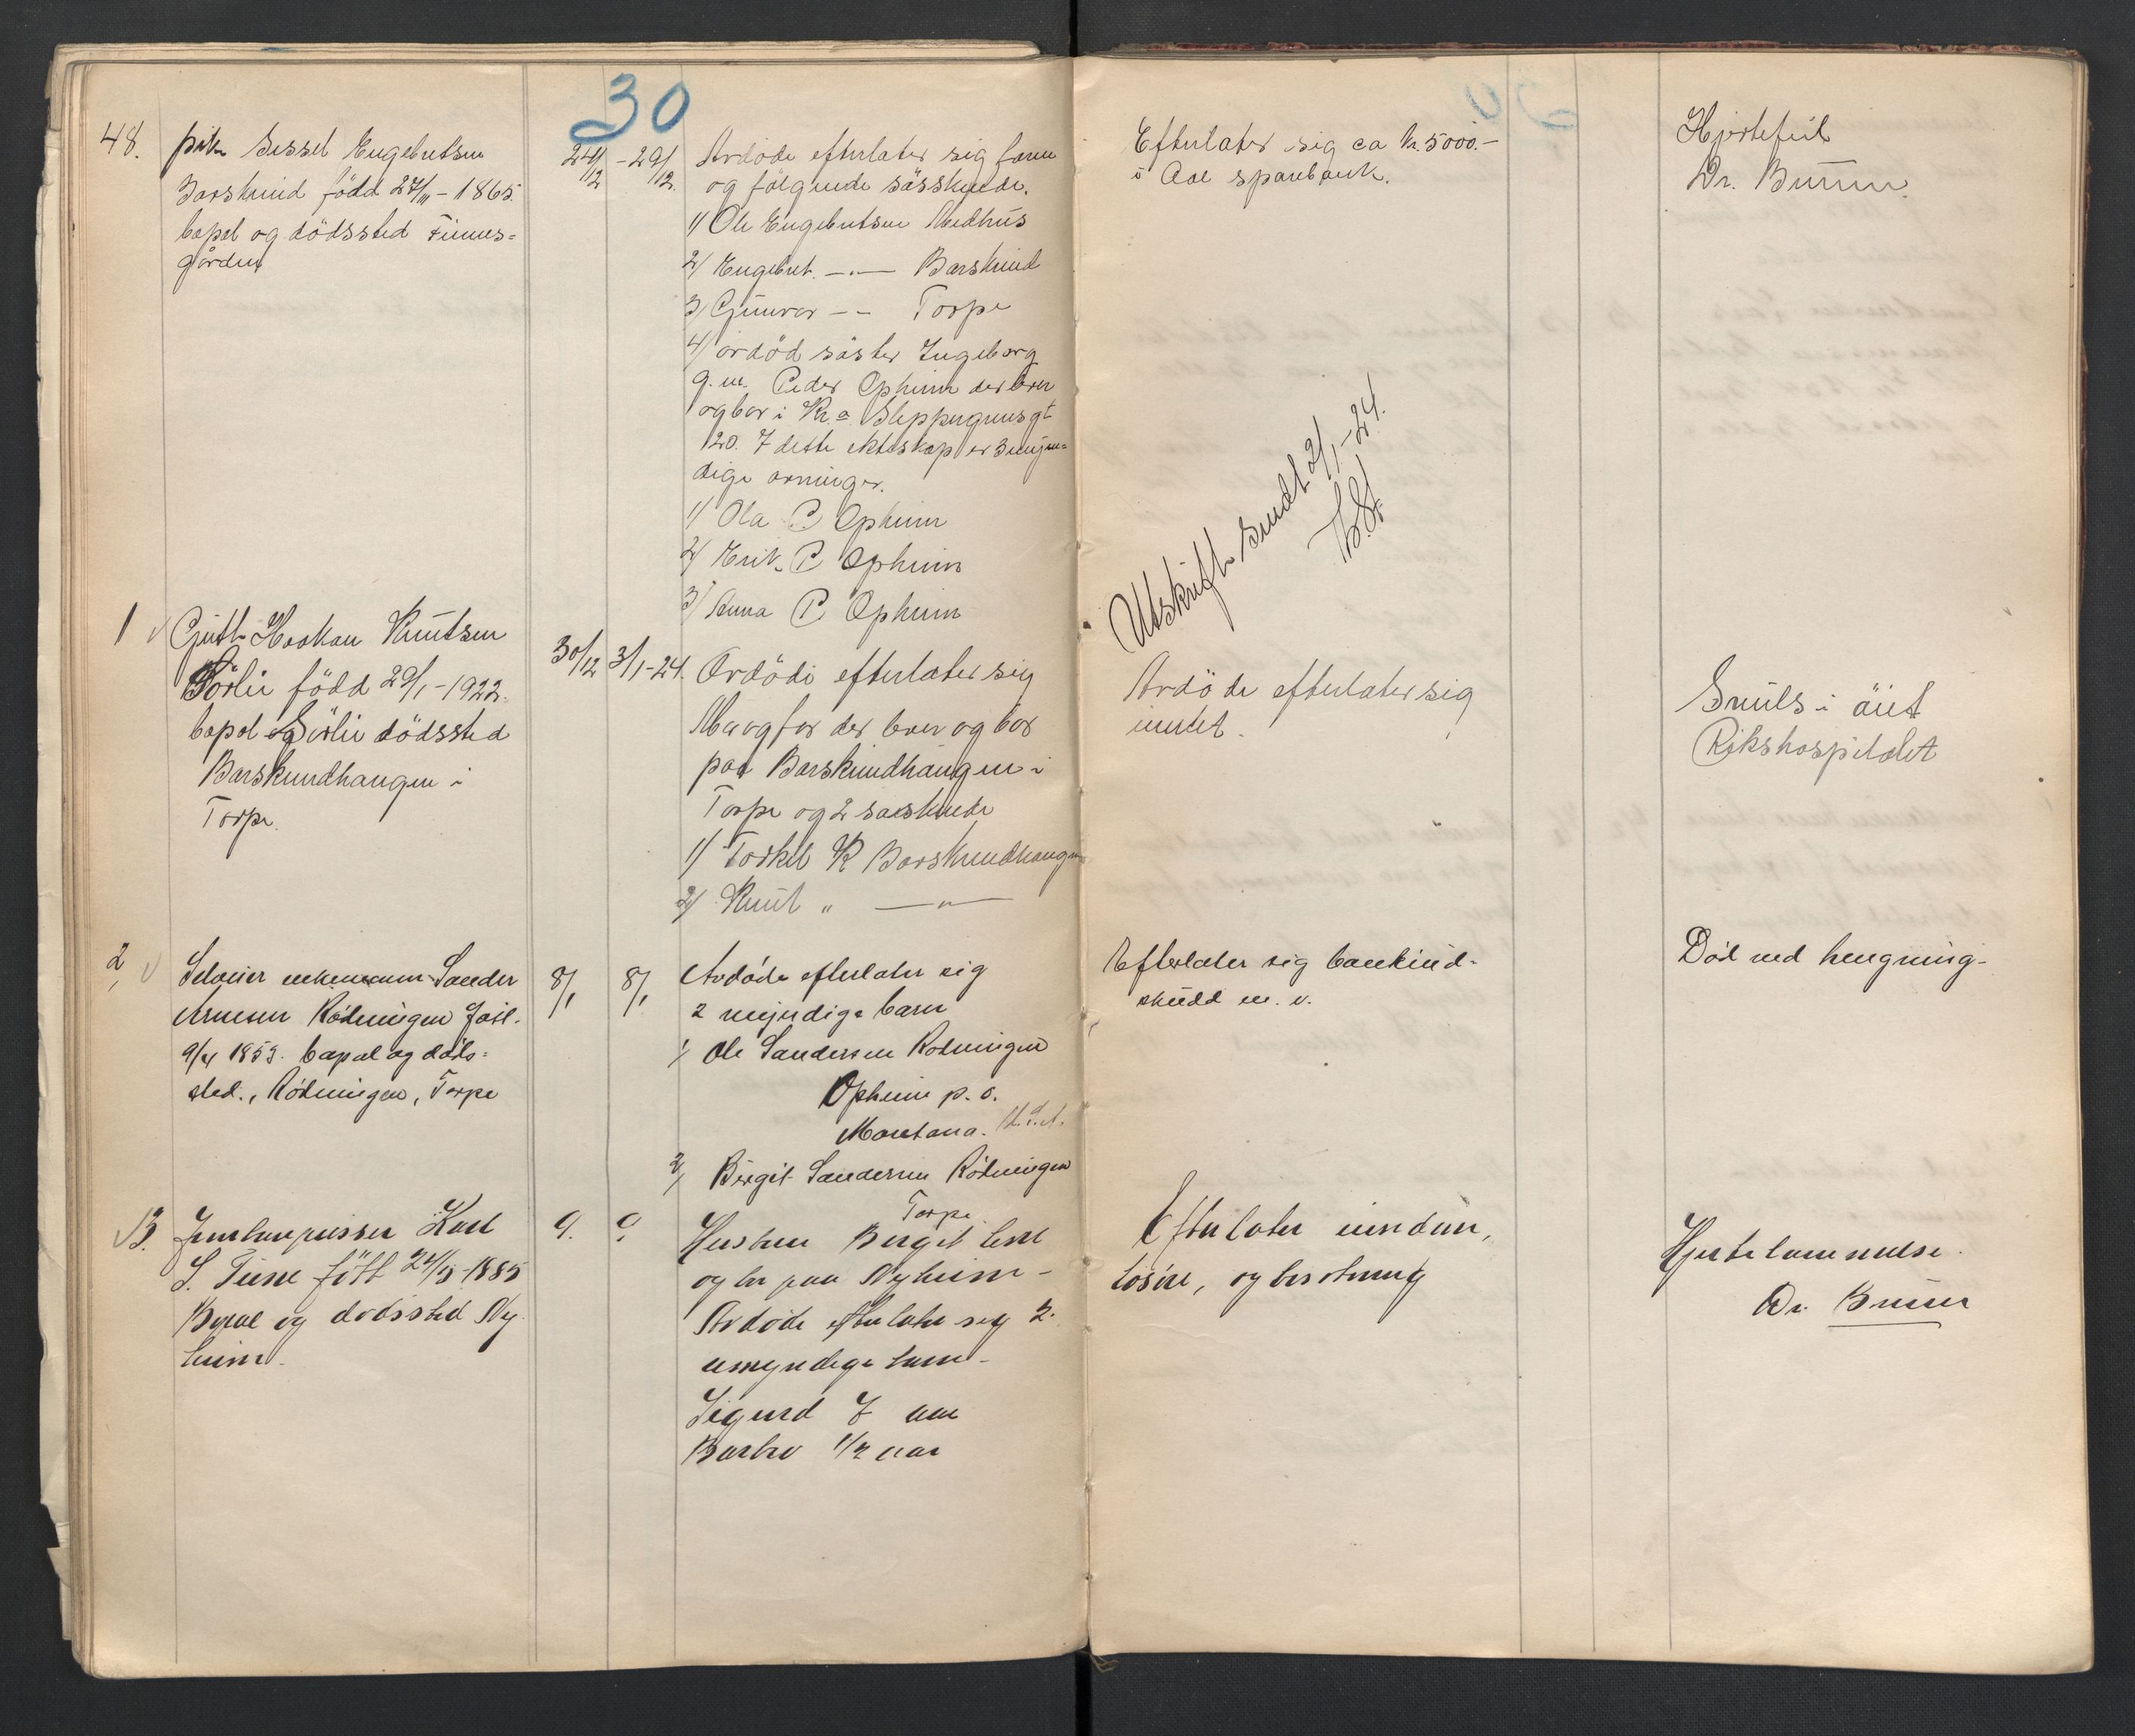 30
48.
pike Sissel Engebretsen
Barskrind född 27/11 - 1865.
bopel og dödssted Finnes=
gården
24/12 - 29/12.
Avdöde efterlater sig
og fölgende sösskende.
1) Ole Engebretsen Medhus
2) Engebret. —"— Barskrind
3) Gunvor — — Torpe
4) avdöd söster Ingeborg
g. m. Peder Opheim der lever
og bor i Kr.a Sleppegrensgt
20. I dette ekteskap er 3 mynd=
dige arvinger.
1) Ola P Opheim
2) Erik P Opheim
3) Anna P Opheim
Efterlater sig ca kr. 5000.-
i Aal sparebank.
Utskrift sendt 2/1-24.
Hjertefeil
Dr. Bruun.
1
Gutt Haakon Knutsen
Sörlie född 29/1 - 1922.
bopel Sörlie dödssted
Barskrindhaugen i
Torpe.
30/12 3/1-24.
Avdöde efterlater sig
Mor og far der lever og bor
paa Barskrindhaugen i
Torpe og 2 søskende
1) Torkel K Barskrindhaugen
2) Knut " —"—
Avdöde efterlater sig
intet.
i öiet
Rikshospitalet
2,
Selveier enkemann Sander
Arnesen Rödningen
9/4 1853. bopæl og döds=
sted., Rödningen, Torpe
8/1 8/1
Avdöde efterlater sig
2 myndige barn
1/ Ole Sandersen Rödningen
Opheim p. o.
Montana. U.S.A.
2/ Birgit Sandersen Rödningen
Torpe
Efterlater sig bankind-
skudd m. v.
Död ved hengning.
3.
S. Tune fött 24/5-1885
Bopæl og dödssted Ny
heim.
9. 9.
Hustru Birgit lever
og bor paa Nyheim -
Avdöde efterlater sig 2
umyndige barn -
Sigurd 7 aar
Barbro 1/2 aar
Efterlater eiendom,
lösöre, og besetning
Hjertelammelse.
Dr. Bruun